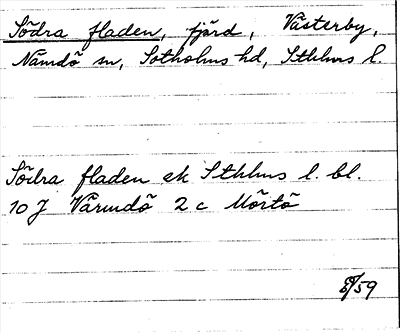 Södra fladen, fjärd, Västerby,
Nämdö sn, Sotholms hd, Sthlms l.
Södra fladen ek Sthlms l. bl.
10 J Värmdö 2 c Mörtö
8/59